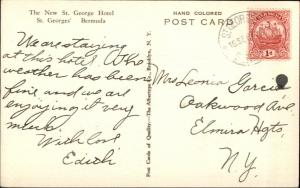 The New St. George Hotel
St. Georges' Bermuda
HAND COLORED
POST CARD
We are staying
at this hotel. The
weather has been
fine and we are
enjoying it very
much.
With love
Edith
Post Cards of Quality.—The Albertype Co., Brooklyn, N. Y.
Mrs Leonia Garcia
Oakwood Ave.
Elmira Hgts.
N.Y.